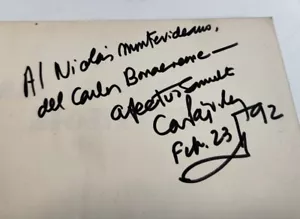 Al Nicolás montevideano,
del Carlos Bonaerense —
afectuosament
Feb. 23 / 92